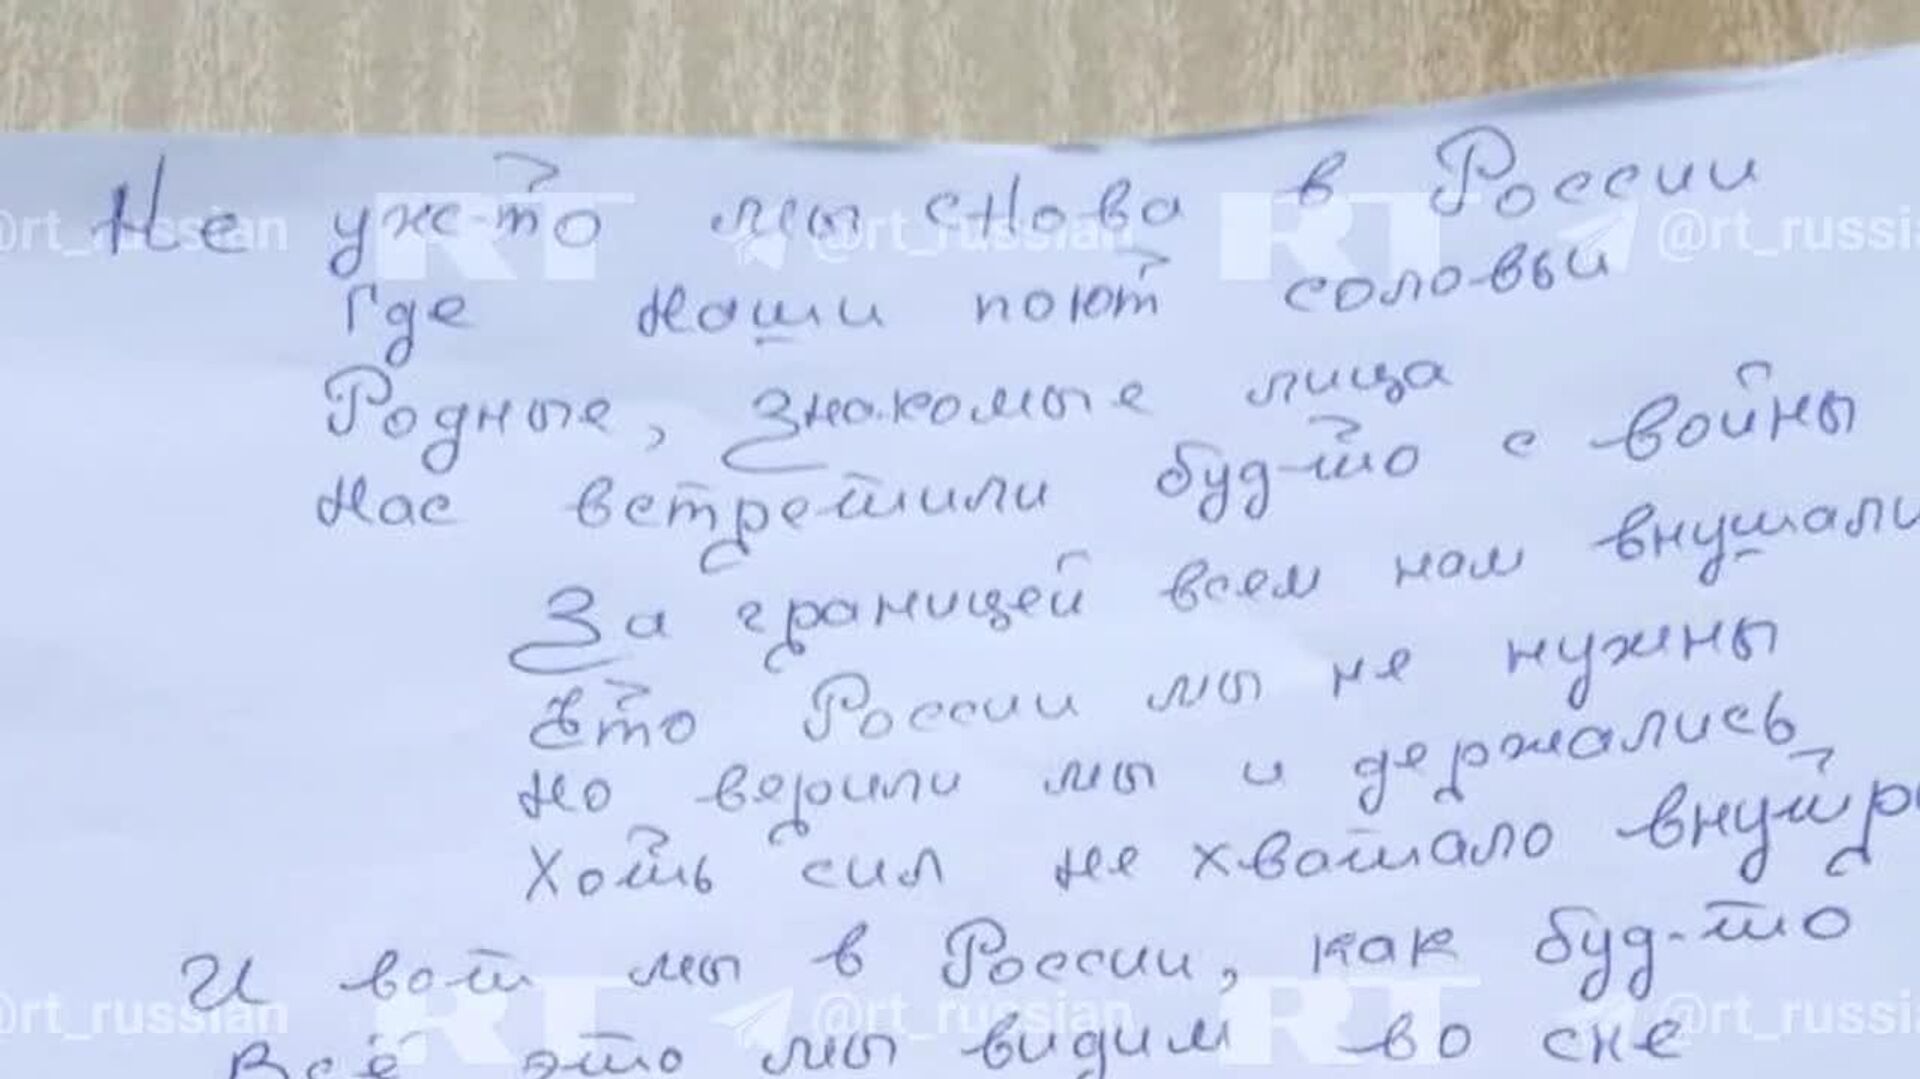 Не уже-то мы снова в России
Где наши поют соловьи
Родные, знакомые лица
Нас встретили буд-то с войны
За границей всем нам внушали
Что России мы не нужны
Но верили мы и держались
Хоть сил не хватало внутр
И вот мы в России, как буд-то
Всё это мы видим во сне
@rt_russian RT @rt_russian RT @rt_russi
@rt_russian RT @rt_russian RT @rt_russi